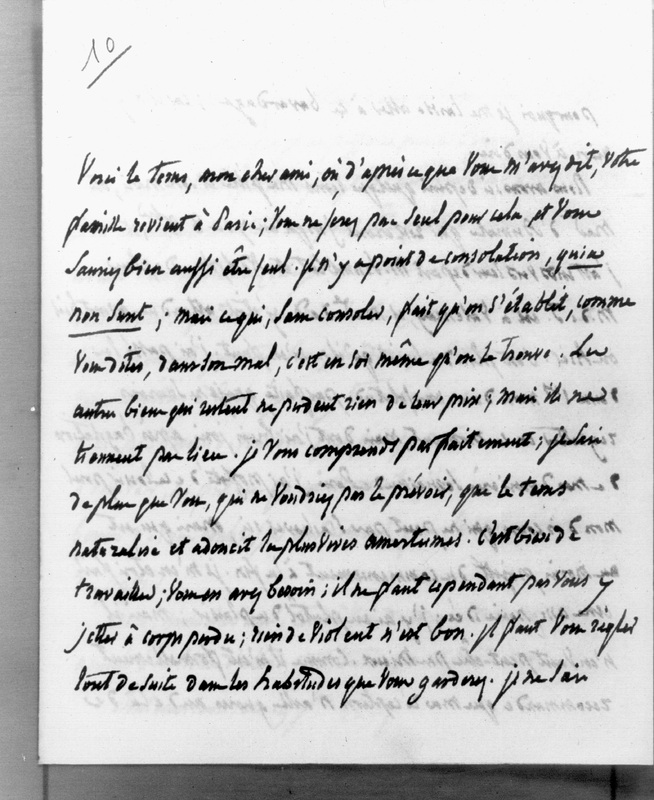 10
Voici le tems, mon cher ami, où, d'après ce que vous m'avez dit, votre
famille revient à Paris; vous ne serez pas seul pour cela, et vous
sauriez bien aussi être seul. Il n'y a point de consolation, quia
non sunt; mais ce qui, sans consoler, fait qu'on s'établit, comme
vous dites, dans son mal, c'est en soi même qu'on le trouve. Les
autres biens qui restent ne perdent rien de leur prix; mais ils ne
tiennent pas lieu. je vous comprends parfaitement; je sais
de plus que vous, qui ne voudriez pas le prévoir, que le tems
naturalise et adoucit les plus vives amertumes. C'est bien de
travailler; vous en avez besoin; il ne faut cependant pas vous y
jetter à corps perdu; rien de violent n'est bon. Il faut vous regler
tout de suite dans les habitudes que vous garderez. je ne sais